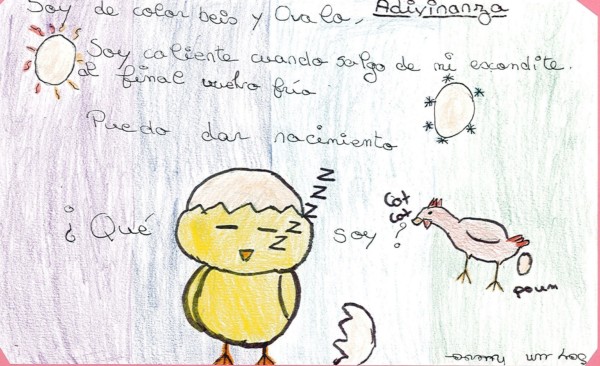 Soy de color beis y Ovalo, Adivinanza
Soy caliente cuando salgo de mi escondite.
Al final vuelvo frío
Puedo dar nacimiento
¿Qué soy?
Z Z Z Z Z
Cot
Cot
poum
Soy un huevo